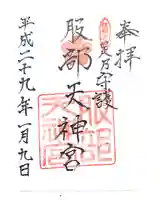 奉拝
足の守護
服部天神宮
平成二十九年一月九日
服部天神宮